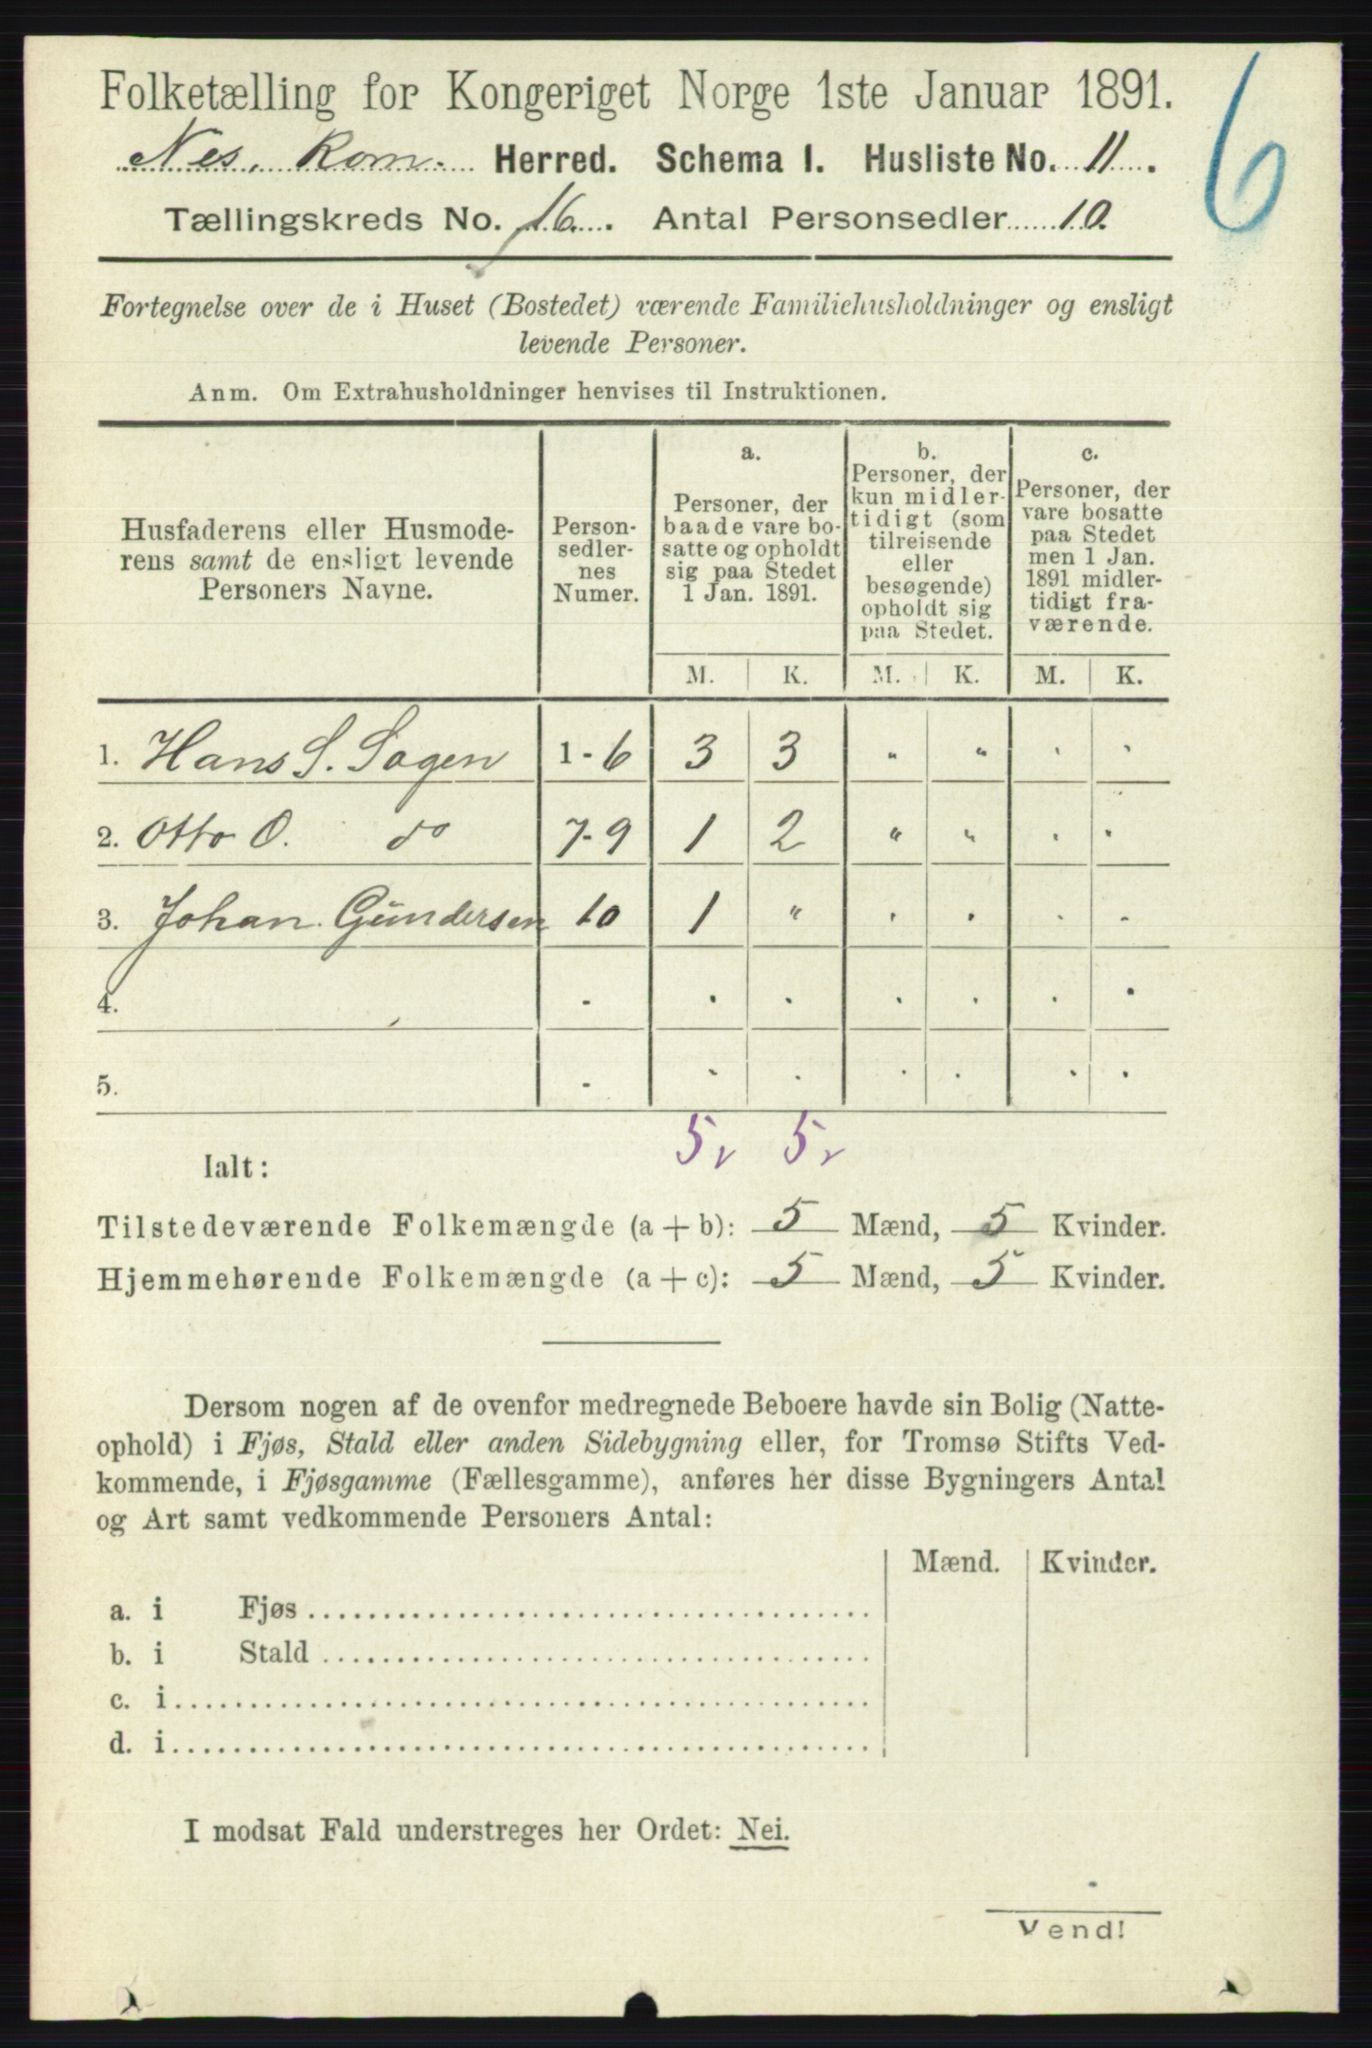 6
Folketælling for Kongeriget Norge 1ste Januar 1891.
Nes, Rom. Herred. Schema I. Husliste No. 11.
Tællingskreds No. 16. Antal Personsedler 10.
Fortegnelse over de i Huset (Bostedet) værende Familiehusholdninger og ensligt
levende Personer.
Anm. Om Extrahusholdninger henvises til Instruktionen.
Husfaderens eller Husmode-
rens samt de ensligt levende
Personers Navne.
Person-
sedler-
nes
Numer.
a.
Personer, der
baade vare bo-
satte og opholdt
sig paa Stedet
1 Jan. 1891.
b.
Personer, der
kun midler-
tidigt (som
tilreisende
eller
besøgende)
opholdt sig
paa Stedet.
c.
Personer, der
vare bosatte
paa Stedet
men 1 Jan.
1891 midler-
tidigt fra-
værende.
M. K. M. K. M. K.
1. Hans S. Sagen 1-6 3 3 " " . .
2. Otto O. do 7-9 1 2 " " . .
3. Johan Gundersen 10 1 " . . . .
4. - . . . . . .
5. - . . . . . .
5 5
Ialt:
Tilstedeværende Folkemængde (a + b): 5 Mænd, 5 Kvinder.
Hjemmehørende Folkemængde (a + c): 5 Mænd, 5 Kvinder.
Dersom nogen af de ovenfor medregnede Beboere havde sin Bolig (Natte-
ophold) i Fjøs, Stald eller anden Sidebygning eller, for Tromsø Stifts Ved-
kommende, i Fjøsgamme (Fællesgamme), anføres her disse Bygningers Antal
og Art samt vedkommende Personers Antal:
Mænd. Kvinder.
a. i Fjøs
b. i Stald
c. i
d. i
I modsat Fald understreges her Ordet: Nei.
Vend!